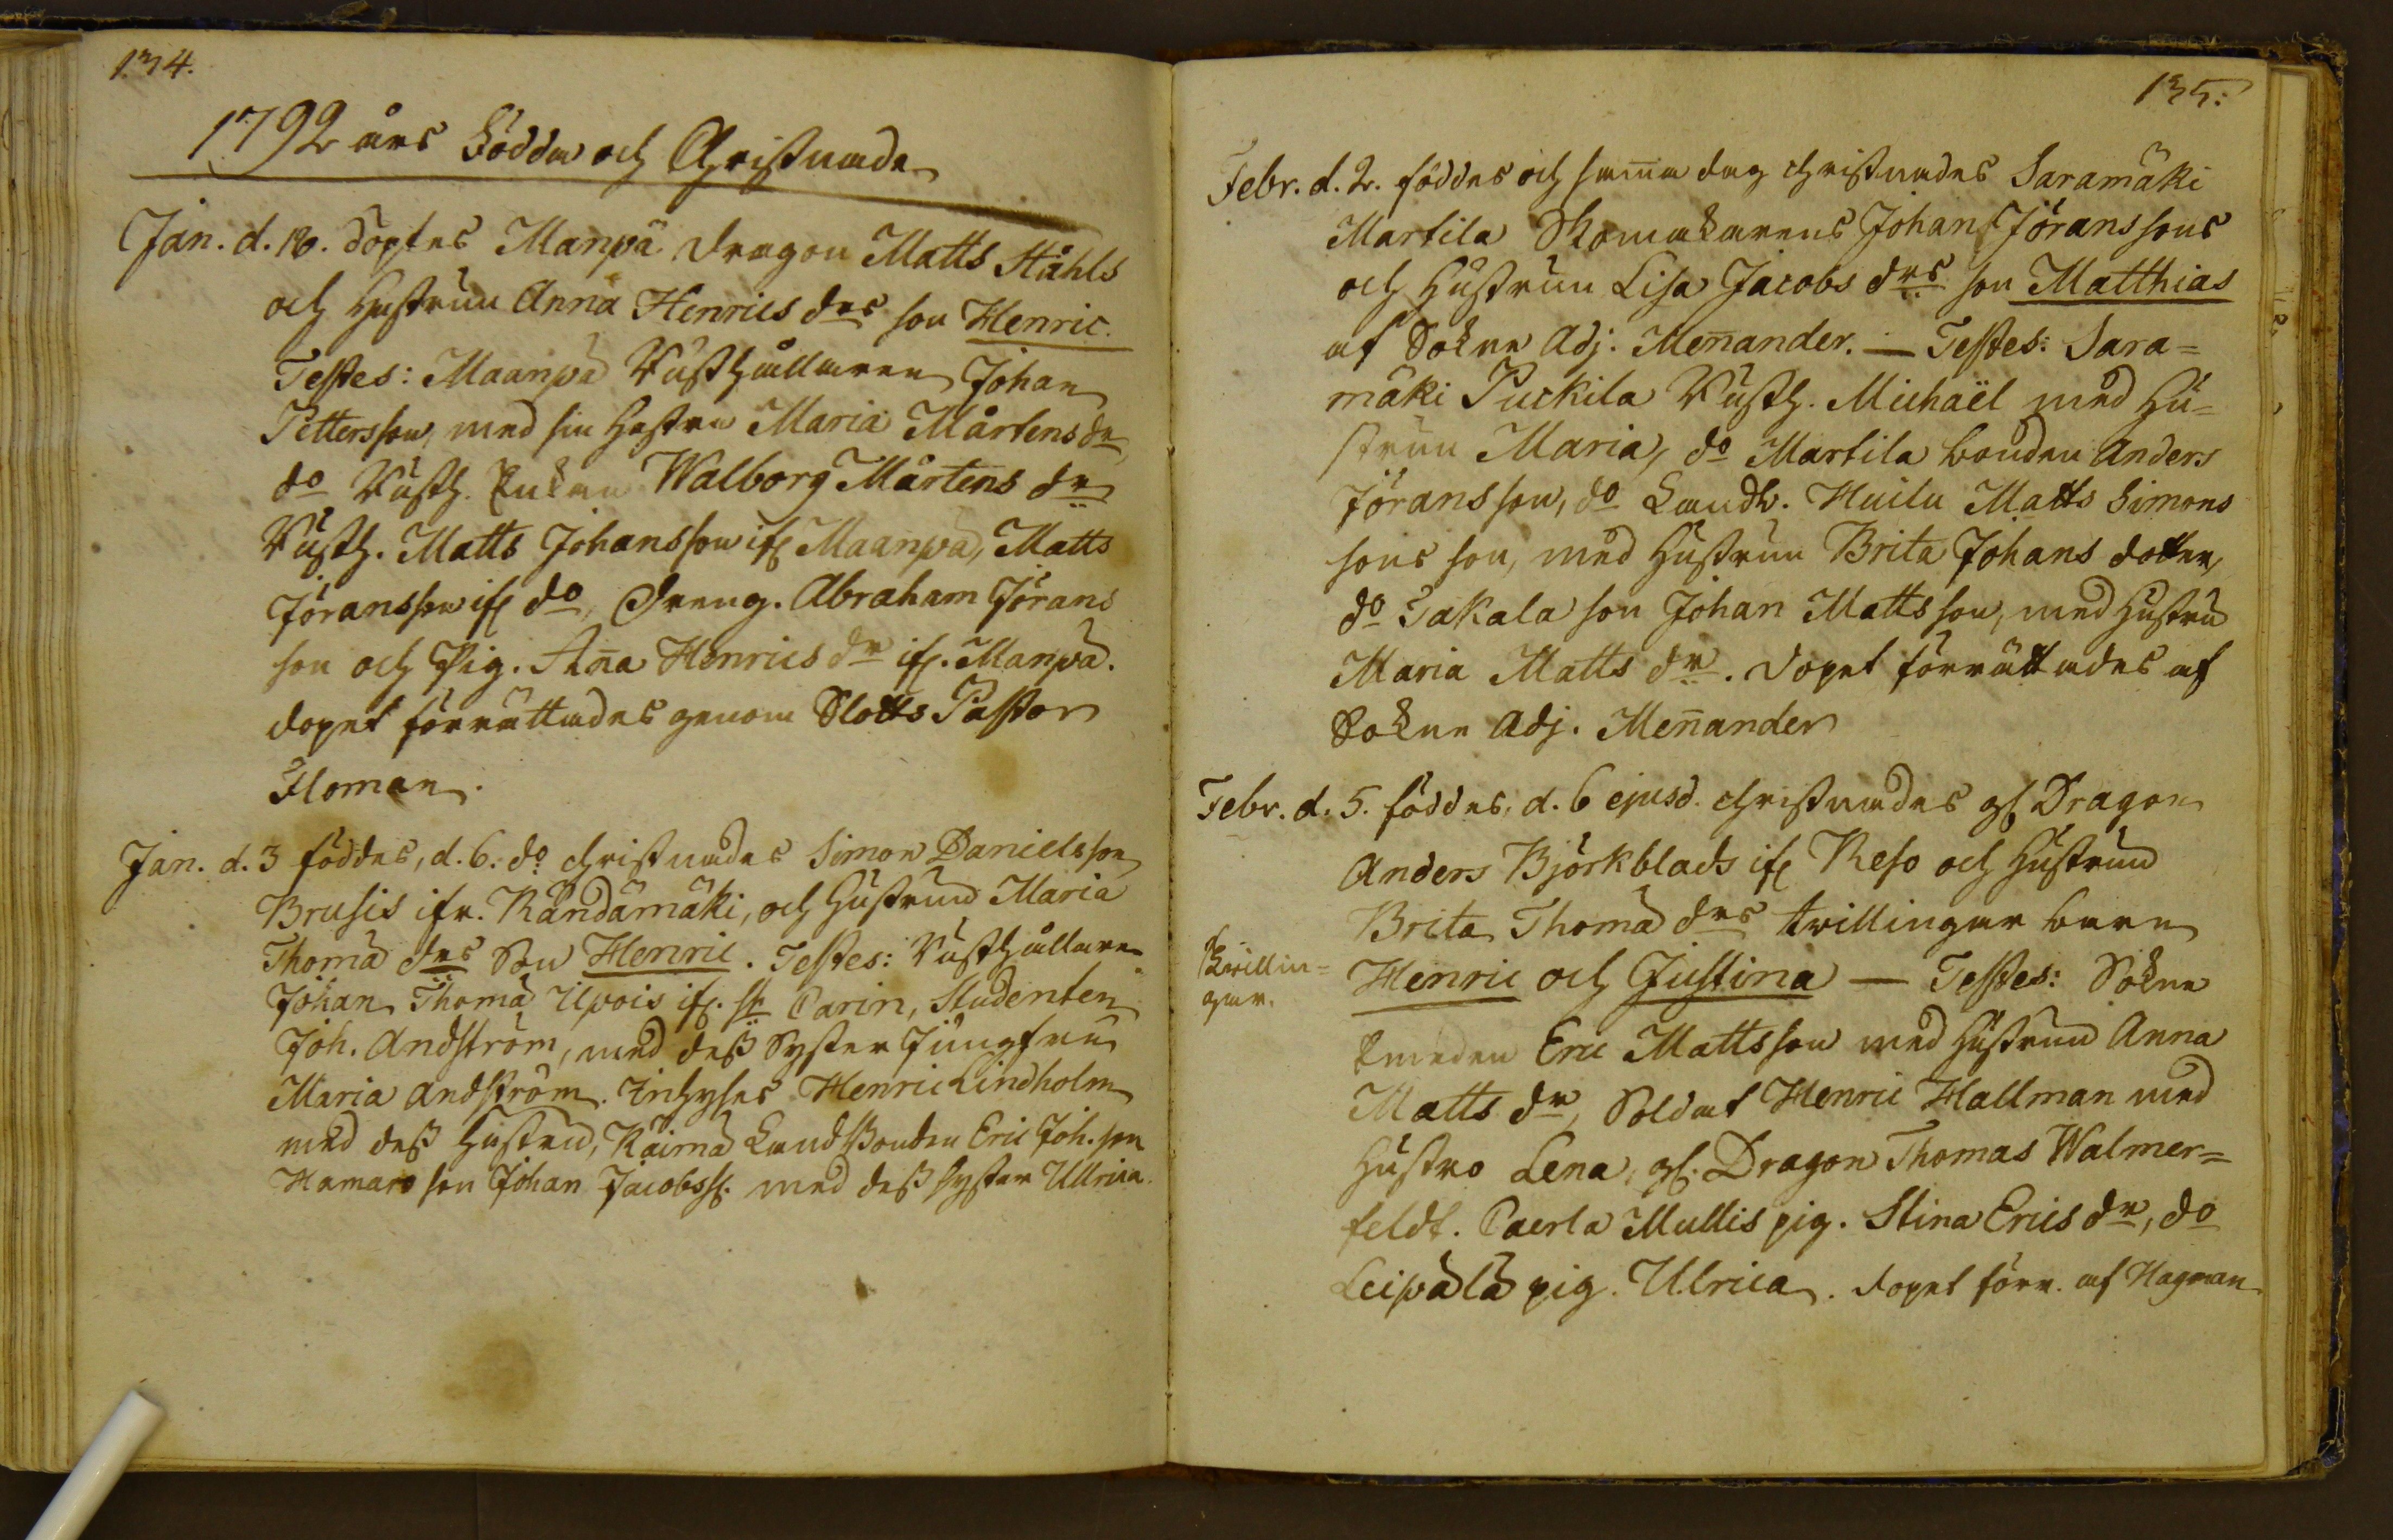 134.
1792 års Födda och Christnade
Jan. d. 18. döptes Manpä Dragon Matts Ståhls
och hustrun Anna Henrics drs son Henric.
Testes: Maanpä Rusthållaren Johan
Pettersson, med sin hustru Maria Mårtens dr
do Rusth. Enkan Walborg Mårtens dr
Rusth. Matts Johansson ifr Maanpä, Matts
Jöransson ifr do, Dreng. Abraham Jörans
son och Pig. Aña Henrics dr ifr. Manpä.
dopet förrättades genom Slotts Pastor
Floman.
Jan. d. 3 föddes, d. 6. do christnades Simon Danielsson
Brusis ifr. Rändämäki, och Hustruns Maria
Thomä drs Son Henric. Testes: Rusthållaren
Johan Thomä Upois ifr. St Carin, Studenten
Joh. Andström, med dess Syster Jungfru
Maria Andström. Henric Lindholm
med dess hustru, Räimä Landbonden Eric Joh.son
Hamaro son Johan Jacobss. med dess syster Ullrica.
135.
Febr. d. 2. föddes och sam̄a dag christnades Saramäki
Martila Skomakarens Johan Jöranssons
och Hustrun Lisa Jacobs drs son Matthias
af Sokne Adj. Men̄ander. — Testes: Sara=
mäki Puckila Rusth. Michaël med Hu=
strun Maria, do Martila bonden Anders
Jöransson, do Landb. Huilu Matts Simons
sons son, med Hustrun Brita Johans dotter,
do Takala son Johan Mattsson, med Hustru
Maria Matts dr. Dopet förrättades af
Sokne Adj. Men̄ander
Febr. d. 5. föddes, d. 6 ejusd. christnades gl Dragon
Anders Björkblads ifr Reso och Hustruns
Brita Thomä drs twillingar barn
Twillin=
gar.
Henric och Justina — Testes: Sokne
smeden Eric Mattsson med Hustrun Anna
Matts dr, Soldat Henric Hallman med
Hustro Lena, gl. Dragon Thomas Walmer=
feldt. Caerla Mullis pig. Stina Erics dr, do
Leipälä pig. Ulrica. Dopet förr. af Hagman